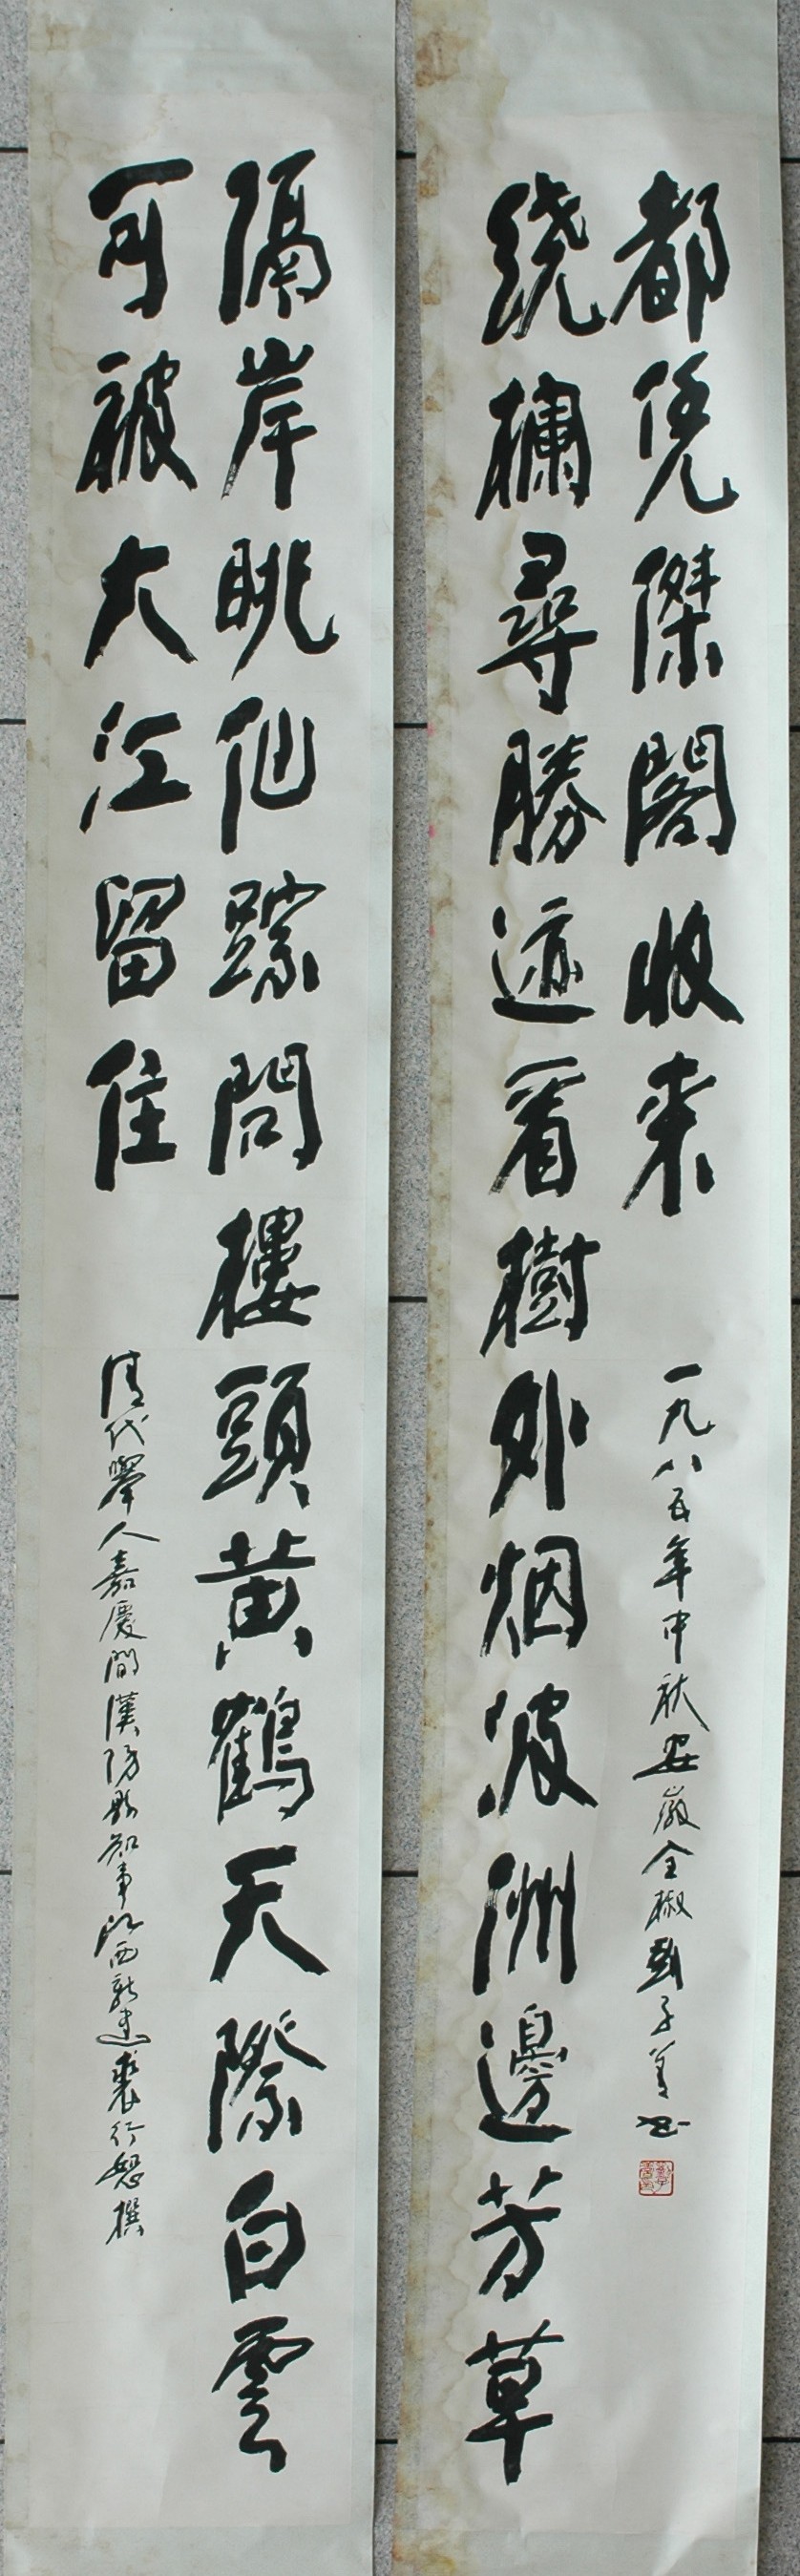 隔岸眺仙踪問樓頭黄鶴天際白雲
可被大江留住
清代舉人嘉慶間漢陽縣知事江西新建裘行恕撰
绕欄尋勝迹看樹外烟波洲邊芳草
都凭傑閣收来
一九八五年中秋安徽全椒劉子善书